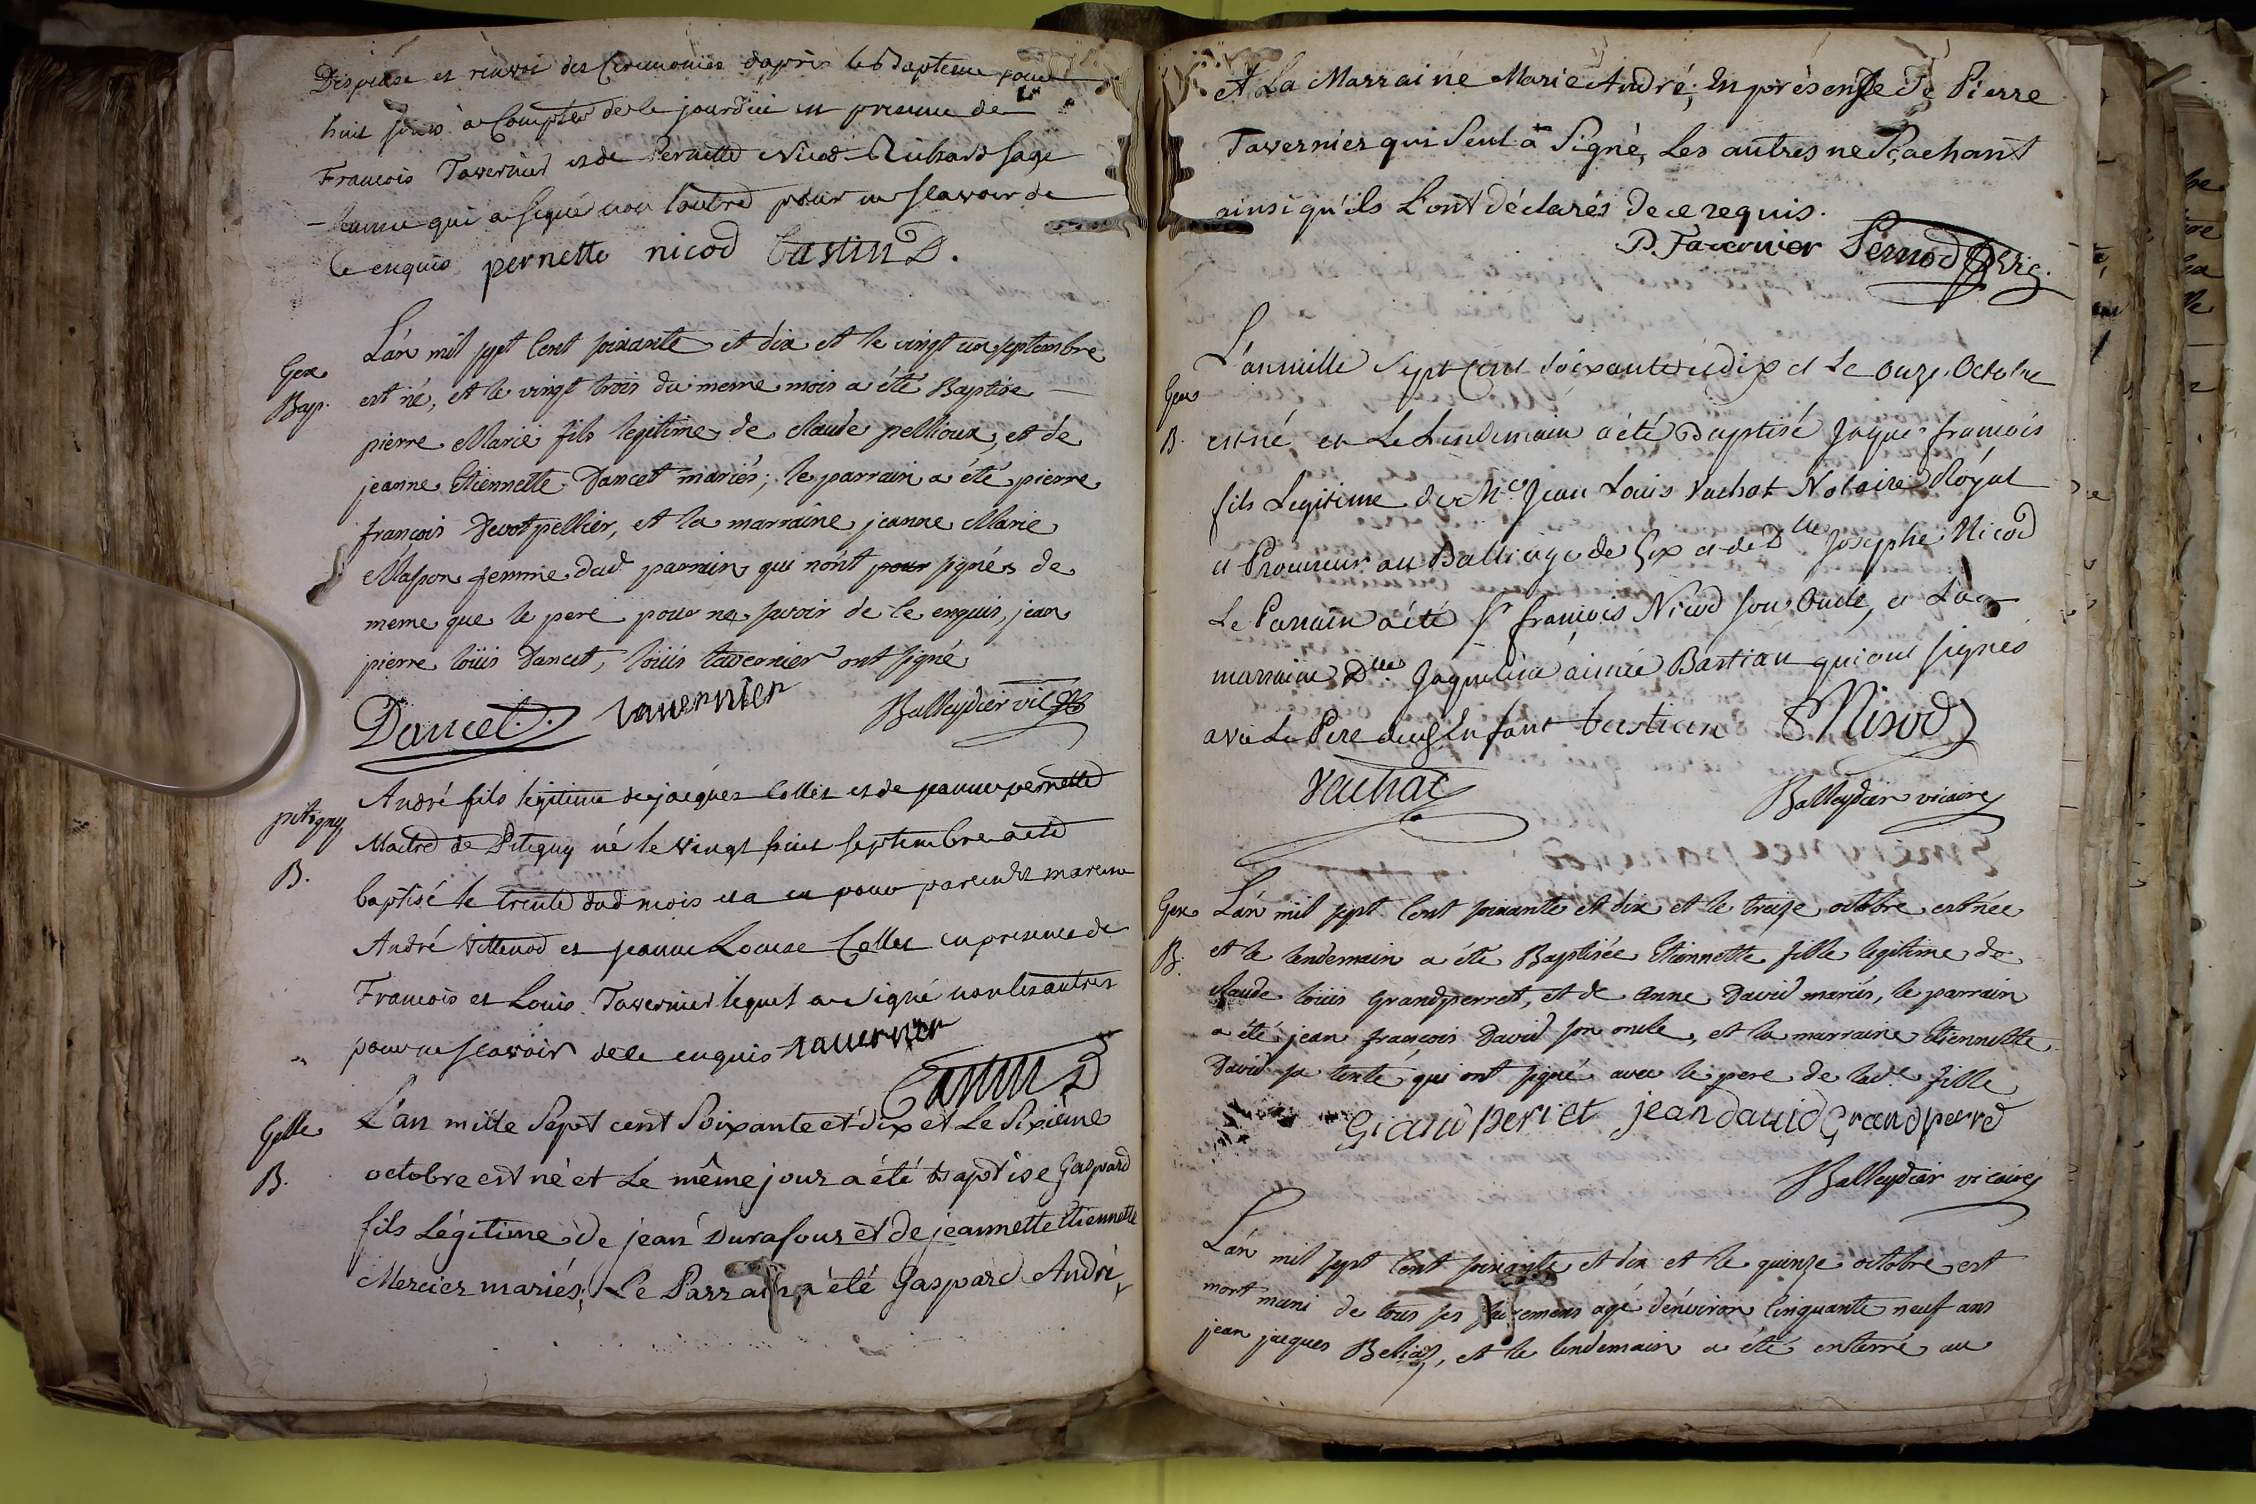 Dispense et renvoi des Ceremonies daprès le Bapteme pour
huit jours à Compter de le jourdui en presence de
Francois Tavernier et de Pernette Nicod Richard sage
femme qui a signé non lautre pour ne scavoir de
ce enquis pernette nicod Castin D.
Gex
Bap.
L'an mil sept cent soixante et dix et le vingt un septembre
est né, et le vingt trois du meme mois a été Baptise
pierre Marie fils legitime de claude pellioux, et de
jeanne Etiennette Dancet mariés; le parrain a été pierre
françois Devotpellier, et la marraine jeanne Marie
Masson femme dud parrain qui n'ont pour signés de
meme que le pere pour ne savoir de le enquis, jean
pierre loüis Dancet, loüis tavernier ont signé
Dancet tavernier Balleydier vic
pitigny
B.
André fils légitime de jacques Collet et de jeanne pernette
Maitre de Pitigny né le vingt huit septembre a été
baptisé le trente dud mois et a eu pour parein et mareine
André Villenod et jeanne Louise Collet en presence de
Francois et Louis Tavernier lequel a signé non les autres
pour ne scavoir de ce enquis tavernier
Castin D
Gelle
B.
L'an mille Sept cent Soixante et dix et Le Sixième
octobre est né et Le même jour a été baptise Gaspard
fils Légitime de jean Durafour et de jeannette Etiennette
Mercier mariés; Le Parrain a été Gaspard André,
et La Marraine Marie André; En présence De Pierre
Tavernier qui Seul a Signé, Les autres ne Sçachant
ainsi qu'ils L'ont déclarés De ce requis.
P. Tavernier Pernod Vic.
Gex
B.
L'an mille Sept Cent Soixante et dix et Le onze Octobre
est né, et Le Lendemain a été Baptisé Jaque françois
fils Legitime de Me Jean Louis Vachat Notaire Royal
et Procureur au Balliage de Gex et de Dlle Josephe Nicod
Le Parrain a été Sr françois Nicod son Oncle, et La
marraine Dlle Jaqueline aimée Bastian qui ont signés
avec Le Pere de l'Enfant bastian Nicod
Vachat
Balleydier vicaire
Gex
B.
L'an mil sept cent soixante et dix et le treize octobre est née
et le lendemain a été Baptisée Etiennette fille legitime de
claude loüis Grandperret, et de anne David mariés, le parrain
a été jean françois David son oncle, et la marraine Etiennette
David sa tente, qui ont signé avec le pere de lade fille
jean david Grandperred
Balleydier vicaire
L'an mil sept cent soixante et dix et le quinze octobre est
mort muni de tous ses sacremens agé d'environ cinquante neuf ans
jean jacques Beliaz, et le lendemain a été enterré au